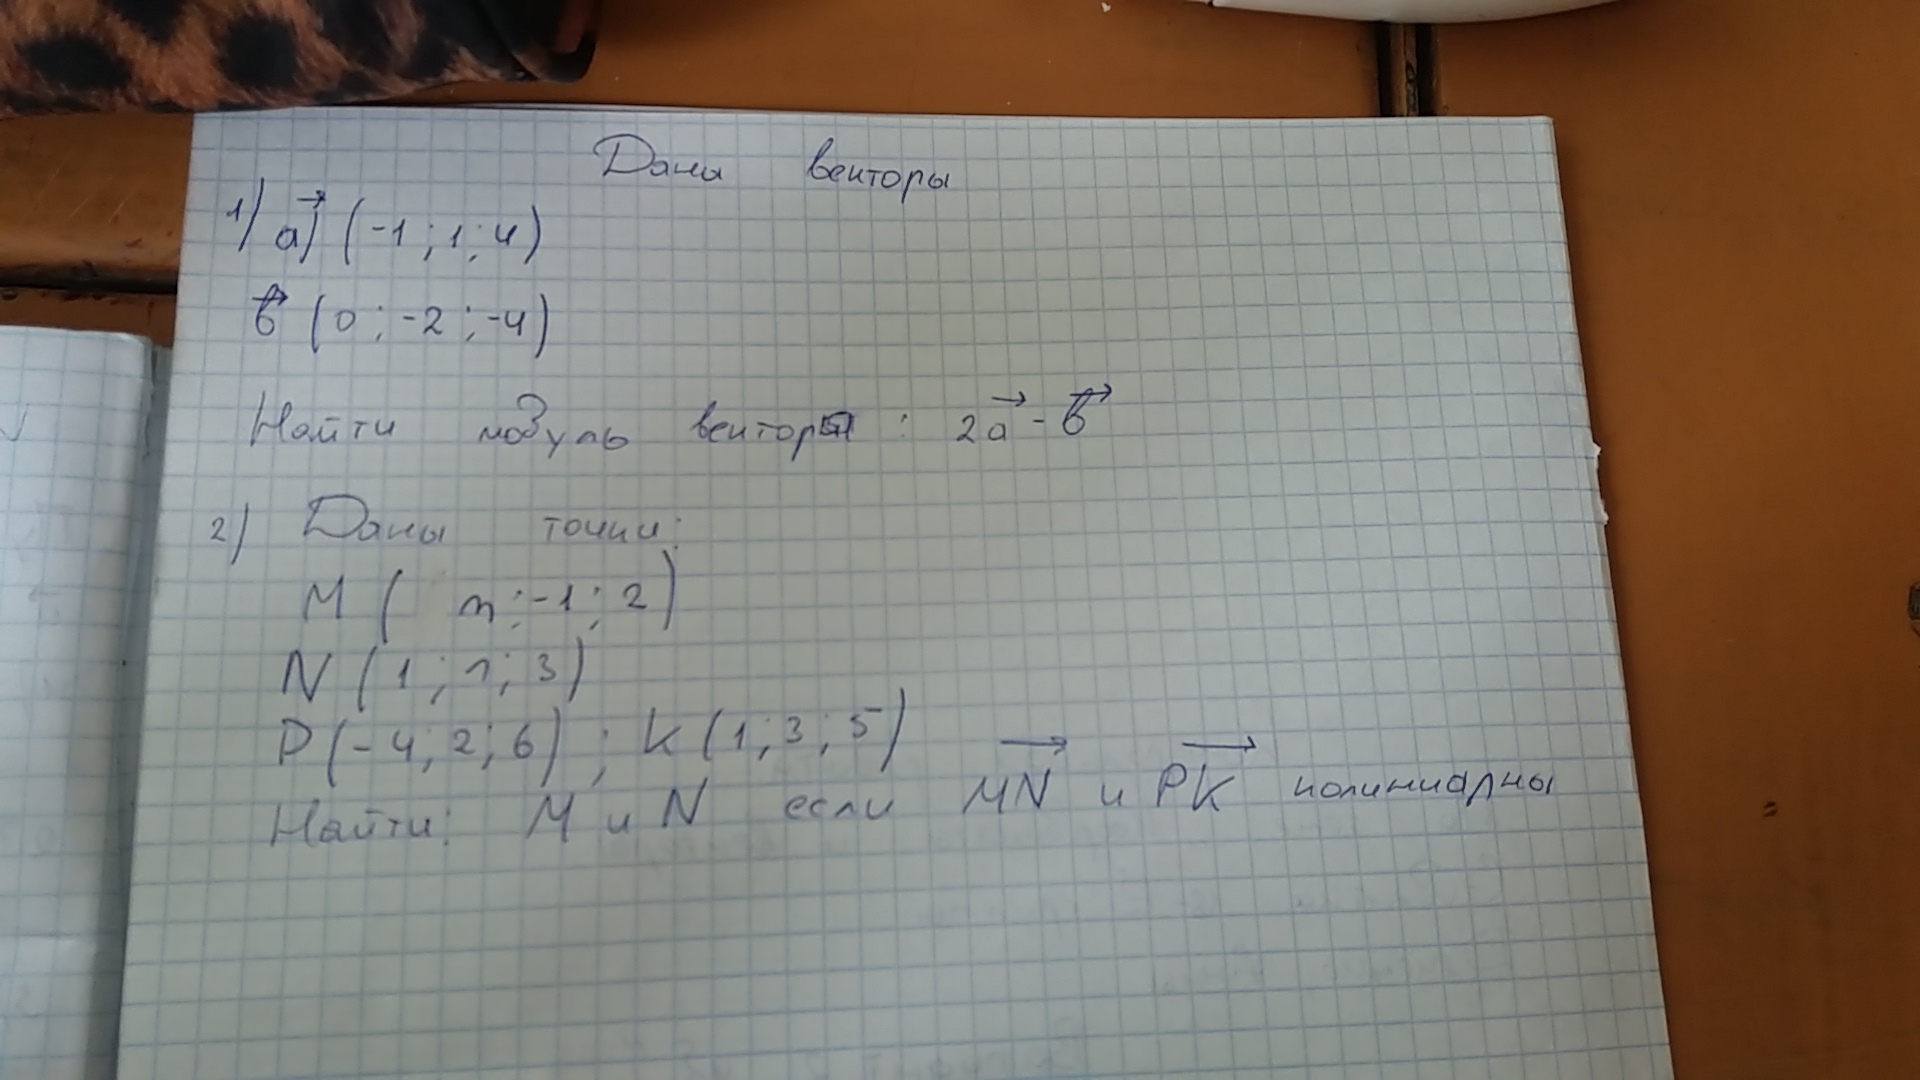 Даны векторы
1) a) (-1; 1; 4)
в (0; -2; -4)
Найти модуль вектора : 2a - в
2) Даны точки:
M ( m; -1; 2)
N (1; n; 3)
P (-4; 2; 6) ; K (1; 3; 5)
Найти: M и N если MN и PK колиниарны